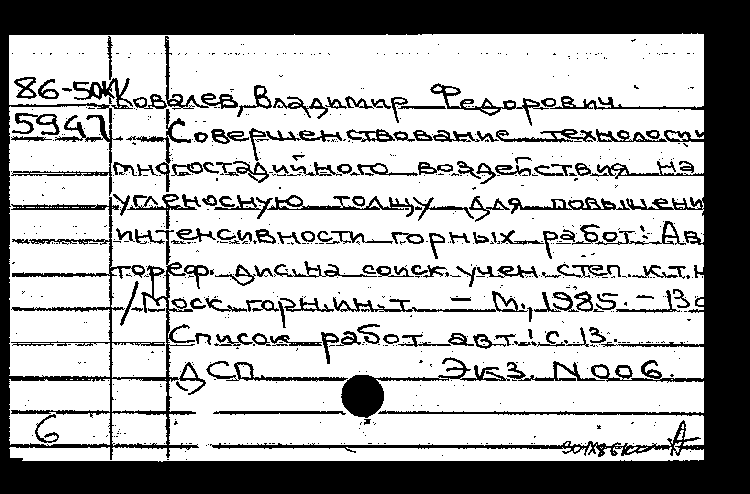 86-50кк Ковалев, Владимир Федорович.
5947 Совершенствование технологии
многостадийного воздействия на
угленосную толщу для повышени
интенсивности горных работ: Ав
тореф. дис. на соиск. учен. степ. к.т.н
/Моск. горн. ин-т. – М., 1985. – 13 с
Список работ авт.: с. 13.
ДСП. Экз. N 006.
6